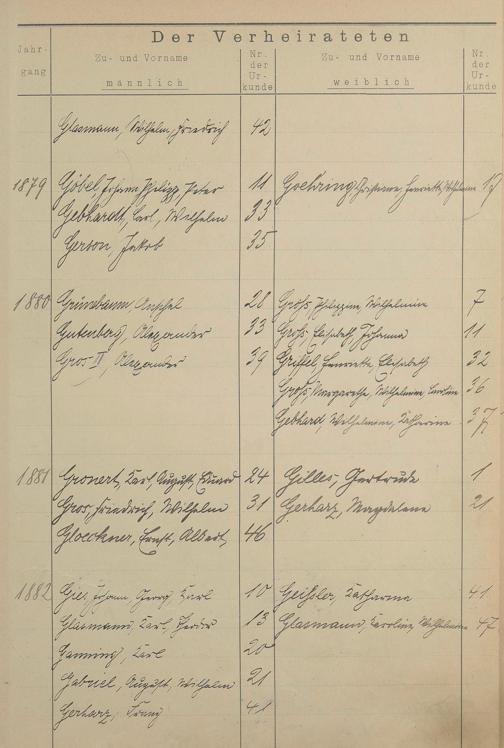 Der Verheirateten
Jahrgang Zu- und Vorname männlich Nr. der Urkunde Zu- und Vorname weiblich Nr. der Urkunde
Glasmann, Wilhelm, Friedrich 42
1879 Göbel, Johann, Philipp, Peter 11 Goehring, Christiane, Henriette, Wilhelmine 17
Gebhardt, Carl, Wilhelm 33
Gerson, Jakob 35
1880 Grünebaum, Anschel 28 Groß, Philippine, Wilhelmine 7
Gutenberg, Alexander 33 Groß, Elisabeth, Johanna 11
Gros II, Alexander 39 Griffel, Henriette, Elisabeth 32
Groß, Margarethe, Wilhelmine, Caroline 36
Gebhard, Wilhelmine, Katharine 37
1881 Gronert, Karl, August, Eduard 24 Gilles, Gertrude 1
Gros, Friedrich, Wilhelm 31 Gerharz, Magdalena 21
Gloeckner, Ernst, Albert, 46
1882 Johann, Georg, Karl 10 Geißler, Katharina 41
Glasmann, Karl, 13 Glasmann, Karoline, Wilhelmine 47
Karl 20
Gabriel, August, Wilhelm 21
Gerharz, Franz 41